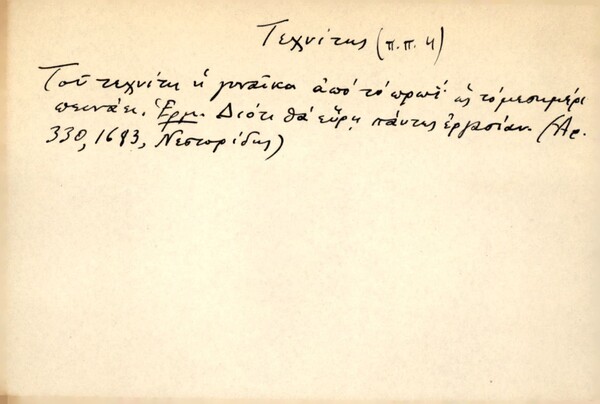 Τεχνίτης (π.π. 4)
Τοῦ τεχνίτη ἡ γυναῖκα ἀπό τό πρωΐ ὡς τό μεσημέρι
πεινάει. Ἑρμ. Διότι θά εὕρῃ πάντως ἐργασίαν. (Αρ.
330, 1683, Νεστορίδης)